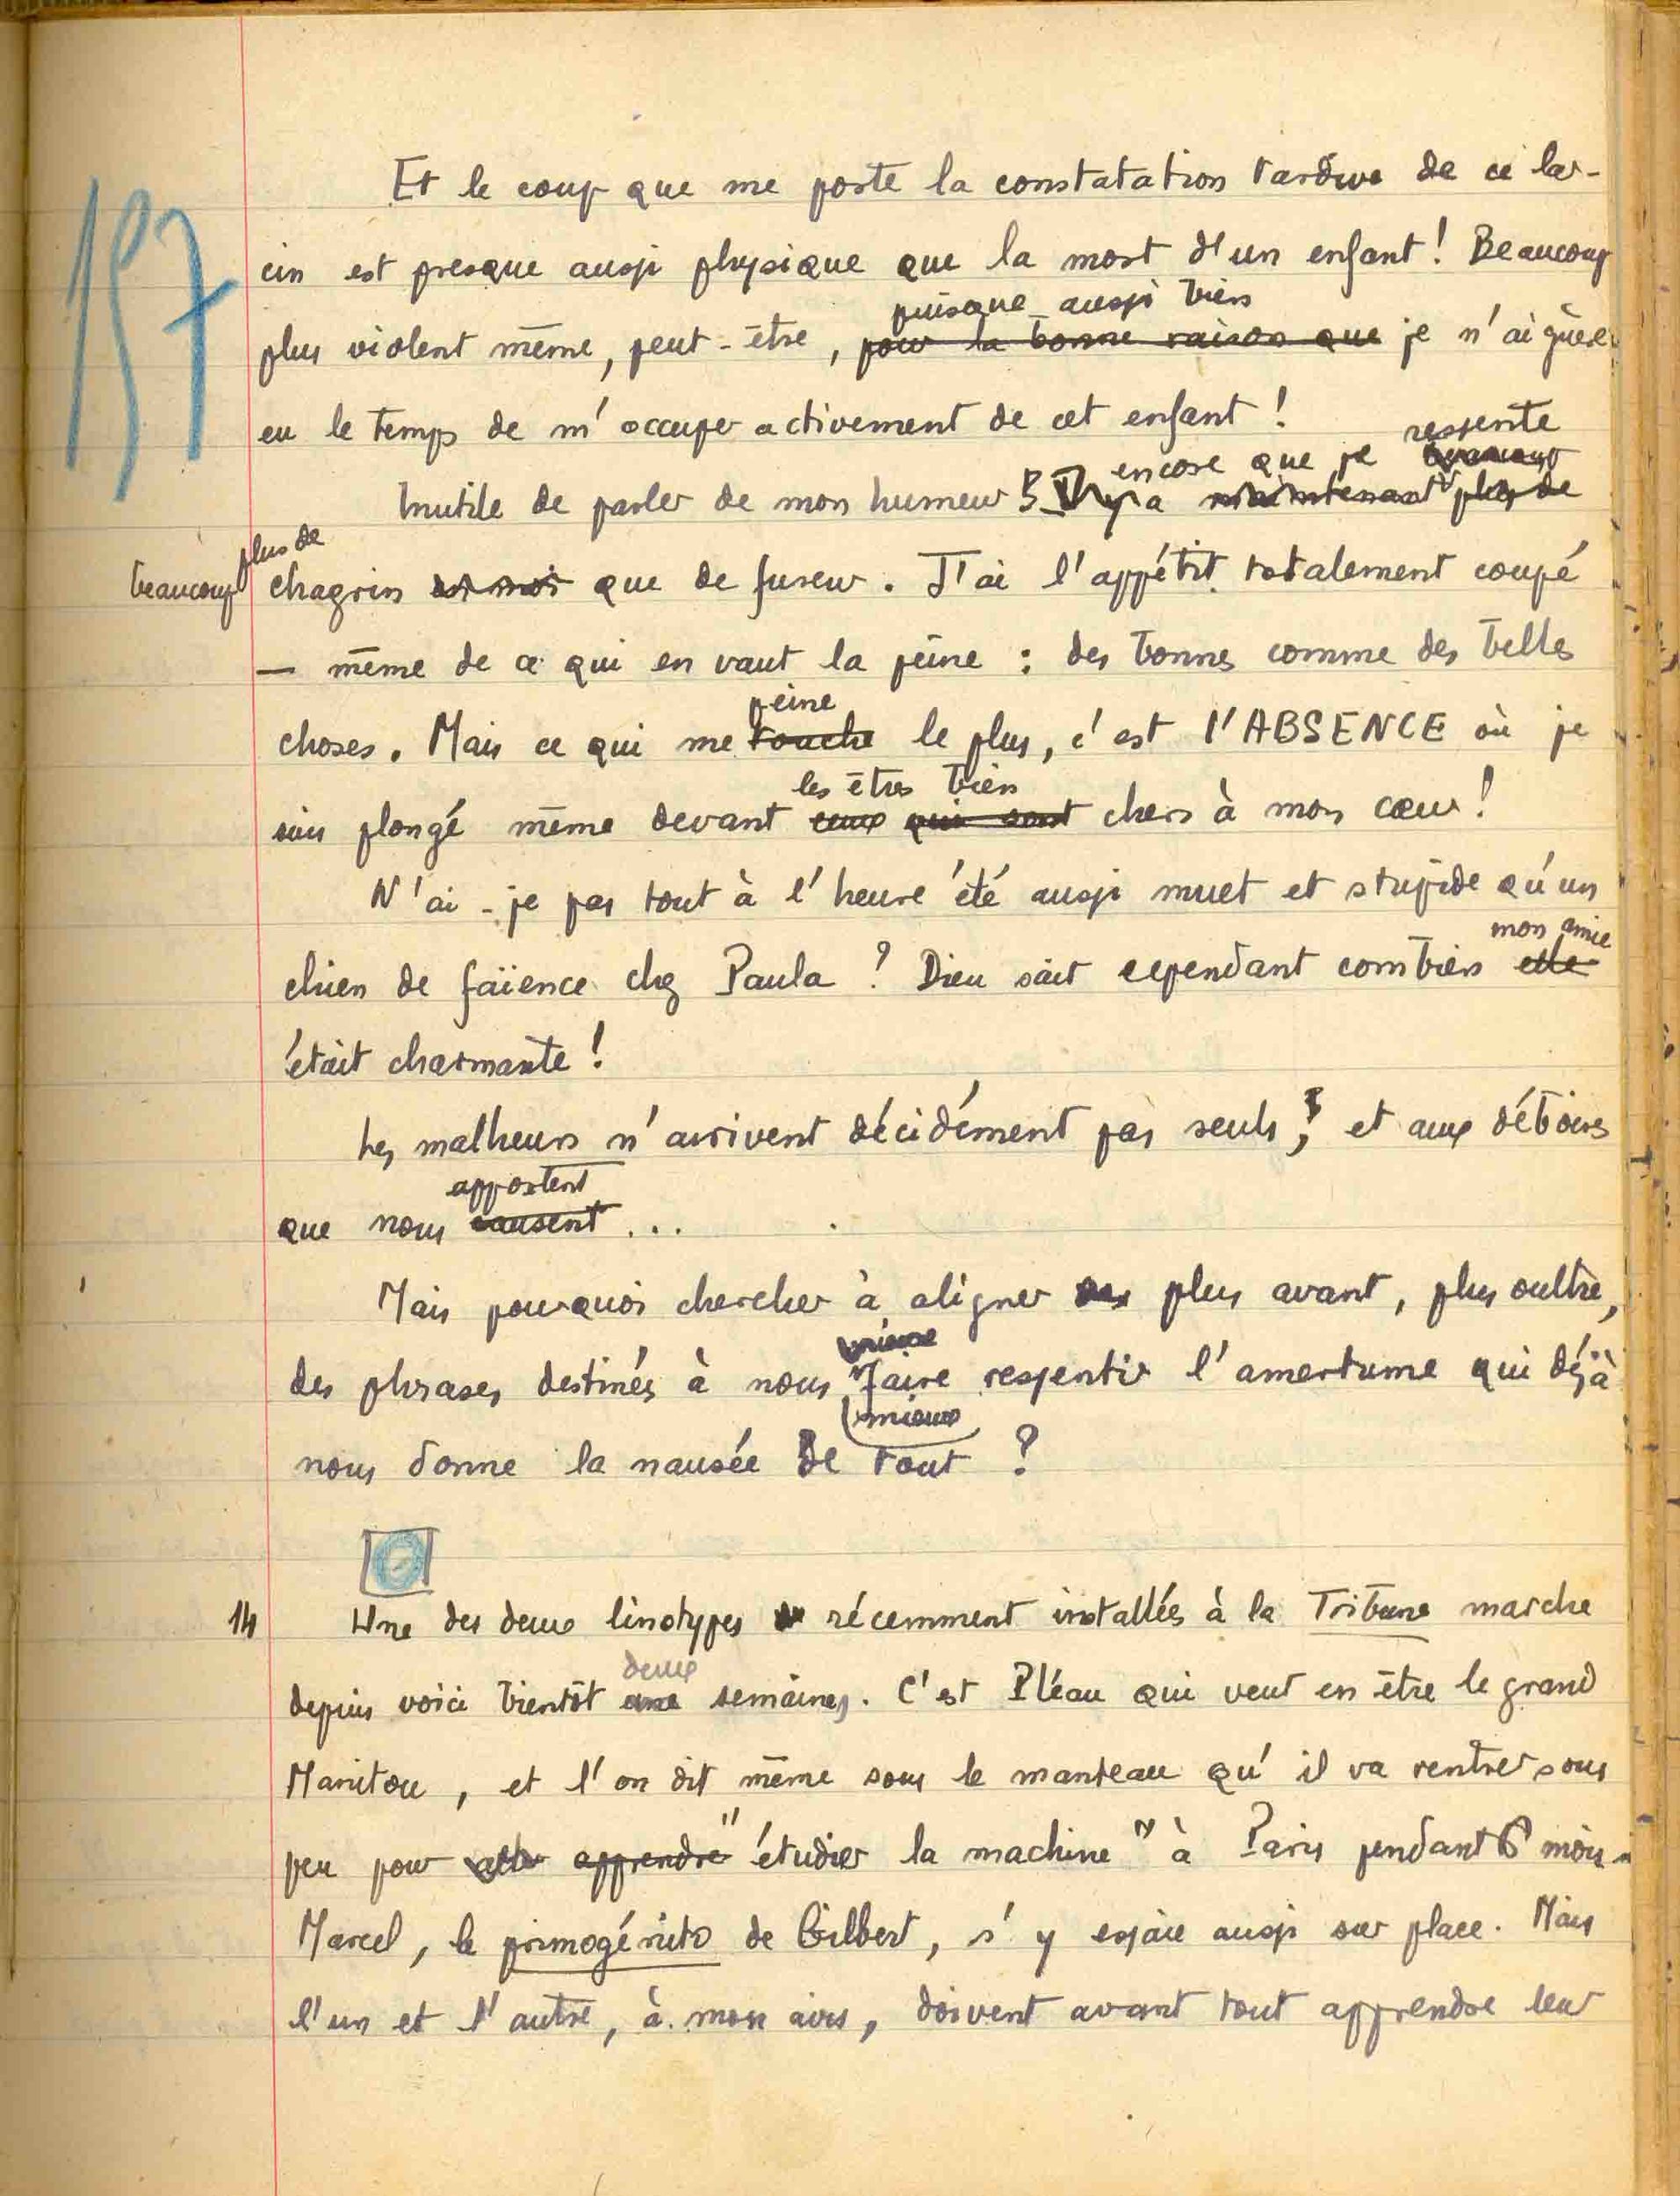 157
Et le coup que me porte la constatation tardive de ce lar-
cin est presque aussi physique que la mort d'un enfant ! Beaucoup
puisque aussi bien
plus violent même, peut-être, pour la bonne raison que je n'ai guère
eu le temps de m'occuper activement de cet enfant !
ressente
encore que je beaucoup
Inutile de parler de mon humeur Il y a maintenant plus de
plus de
beaucoup chagrin que de fureur. J'ai l'appétit totalement coupé
— même de ce qui en vaut la peine : des bonnes comme des belles
peine
choses. Mais ce qui me touche le plus, c'est l'ABSENCE où je
les êtres bien
suis plongé même devant ceux qui sont chers à mon cœur !
N'ai-je pas tout à l'heure été aussi muet et stupide qu'un
mon amie
chien de faïence chez Paula ? Dieu sait cependant combien elle
était charmante !
Les malheurs n'arrivent décidément pas seuls, et aux déboires
apportent
que nous causent ...
Mais pourquoi chercher à aligner plus avant, plus oultre,
des phrases destinés à nous faire ressentir l'amertume qui déjà
mieux
nous donne la nausée de tout ?
14 Une des deux linotypes récemment installées à la Tribune marche
deux
depuis voici bientôt une semaines. C'est Pléau qui veut en être le grand
Manitou, et l'on dit même sous le manteau qu'il va rentrer sous
peu pour aller apprendre "étudier la machine" à Paris pendant 6 mois.
Marcel, le primogénito de Gilbert, s'y essaie aussi sur place. Mais
l'un et l'autre, à mon avis, doivent avant tout apprendre leur